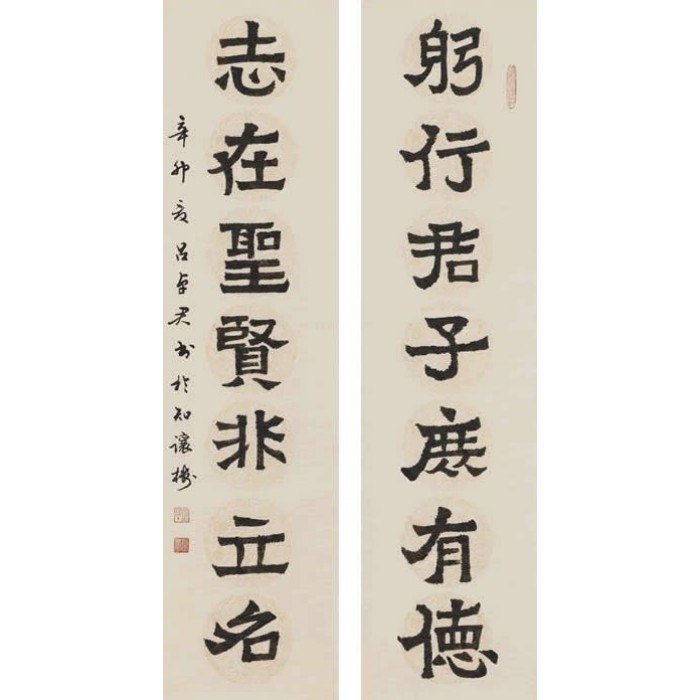 躬行君子庶有德
志在聖賢非立名
辛卯夏吕卓君书於知讓樓